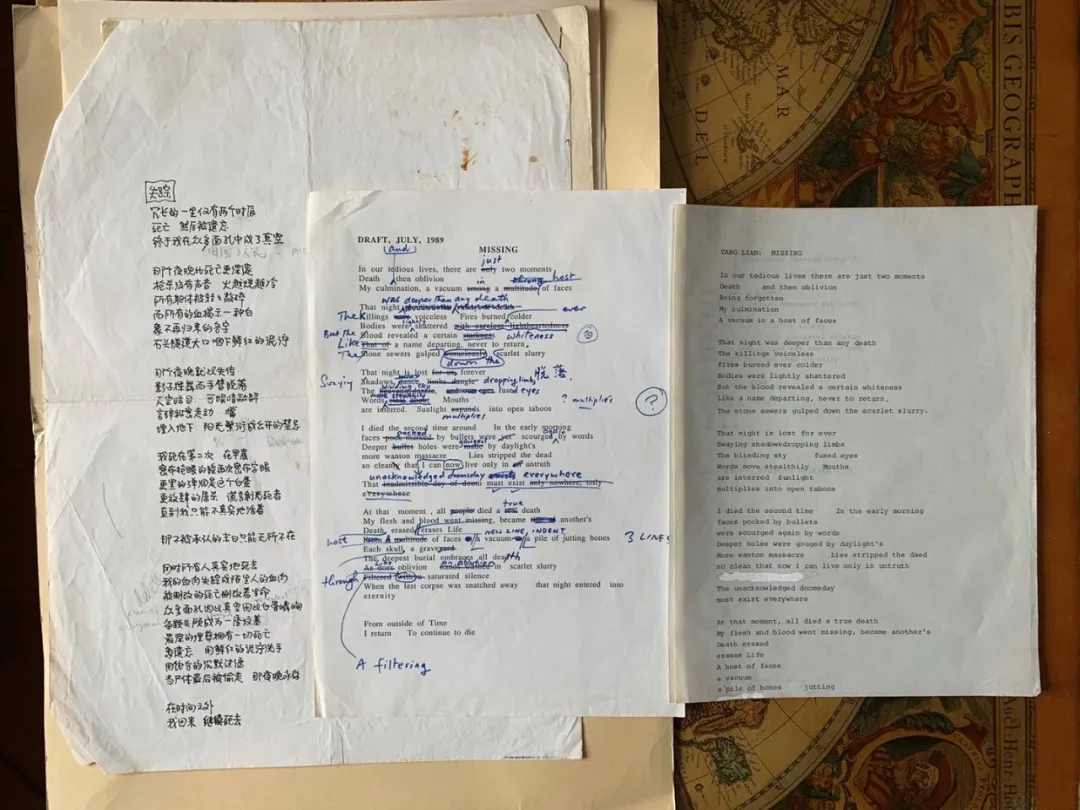 失踪
冗长的一生仅有两个时辰
死亡 然后被遗忘
终于我在众多面孔中成了真空
那个夜晚比死亡更深邃
枪杀没有声音 火越烧越冷
所有躯体被轻轻敲碎
而所有的血揭示一种白
象不再归来的名字
石头隧道大口咽下鲜红的泥泞
那个夜晚就此失传
影子 而手臂脱落
天空眩目
言辞 走动 嘴
埋入地下 阳光繁衍成公开的禁忌
我死在第二次 在早晨
更放肆的屠杀 谎言剥光死者
直到我只能不真实地活着
那不被承认的末日只能无所不在
同时所有人真实地死去
我的血肉失踪成陌生人的血肉
被删改的死亡删改着生命
众多面孔因此真空因此白骨嶙峋
每颗头颅成为一座坟墓
最深的埋葬拥有一切死亡
象遗忘 用鲜红的泥泞洗手
用饱含的沉默过滤
当尸体最后被偷走 那夜晚永存
在时间之外
我回来 继续死去
DRAFT, JULY, 1989
(and)
MISSING
just
In our tedious lives, there are only two moments
Death then oblivion
through host
My culmination, a vacuum among a multitude of faces
was deeper than any death
That night
The K illings voiceless Fires burned colder ever
lightly
Bodies were shattered with careless lightheartedness
But the Blood revealed a certain starkness whiteness
Like That of a name departing, never to return,
The Stone sewers gulped consciously scarlet slurry
down the
That night is lost for ever
Swaying Shadows dance, limbs dangle dropping limbs 脱落
blinding sky
The and our eyes fused eyes
more stealthily
Words slip about Mouths ? multiplies
are interred. Sunlight expands into open taboos
multiplies
?
I died the second time around In the early morning
packed again
faces pock-marked by bullets were yet scourged by words
gouged
Deeper bullet holes were made by daylight's
more wanton massacre Lies stripped the dead
so cleanly that I can now live only in an untruth
unacknowledged doomsday exists everywhere
That inadmissible day of doom must exist only nowhere, only
everywhere
true
At that moment , all people died a real death
My flesh and blood went missing, became another's
Death, erased erases Life
NEW LINE, INDENT
host From A multitude of faces a vacuum a pile of jutting bones 3 LINES
Each skull, a graveyard
The deepest burial embraces all death
like an oblivion
As does oblivion hands in scarlet slurry
through Filtered with a saturated silence
When the last corpse was snatched away that night entered into
eternity
From outside of Time
I return To continue to die
A filtering
YANG LIAN: MISSING
In our tedious lives there are just two moments
Death and then oblivion
Being forgotten
My culmination
A vacuum in a host of faces
That night was deeper than any death
The killings voiceless
Fires burned ever colder
Bodies were lightly shattered
But the blood revealed a certain whiteness
Like a name departing, never to return,
The stone sewers gulped down the scarlet slurry.
That night is lost for ever
Swaying shadowsdropping limbs
The blinding sky fused eyes
Words move stealthily Mouths
are interred Sunlight
multiplies into open taboos
I died the second time In the early morning
faces pocked by bullets
were scourged again by words
Deeper holes were gouged by daylight's
More wanton massacre Lies stripped the daed
so clean that now I can live only in untruth
The unacknowledged doomsday
must exist everywhere
At that moment, all died a true death
My flesh and blood went missing, became another's
Death erased
erases Life
A host of faces
a vacuum
a pile of bones jutting
MAR
DEL
BIS GEOGRAPH